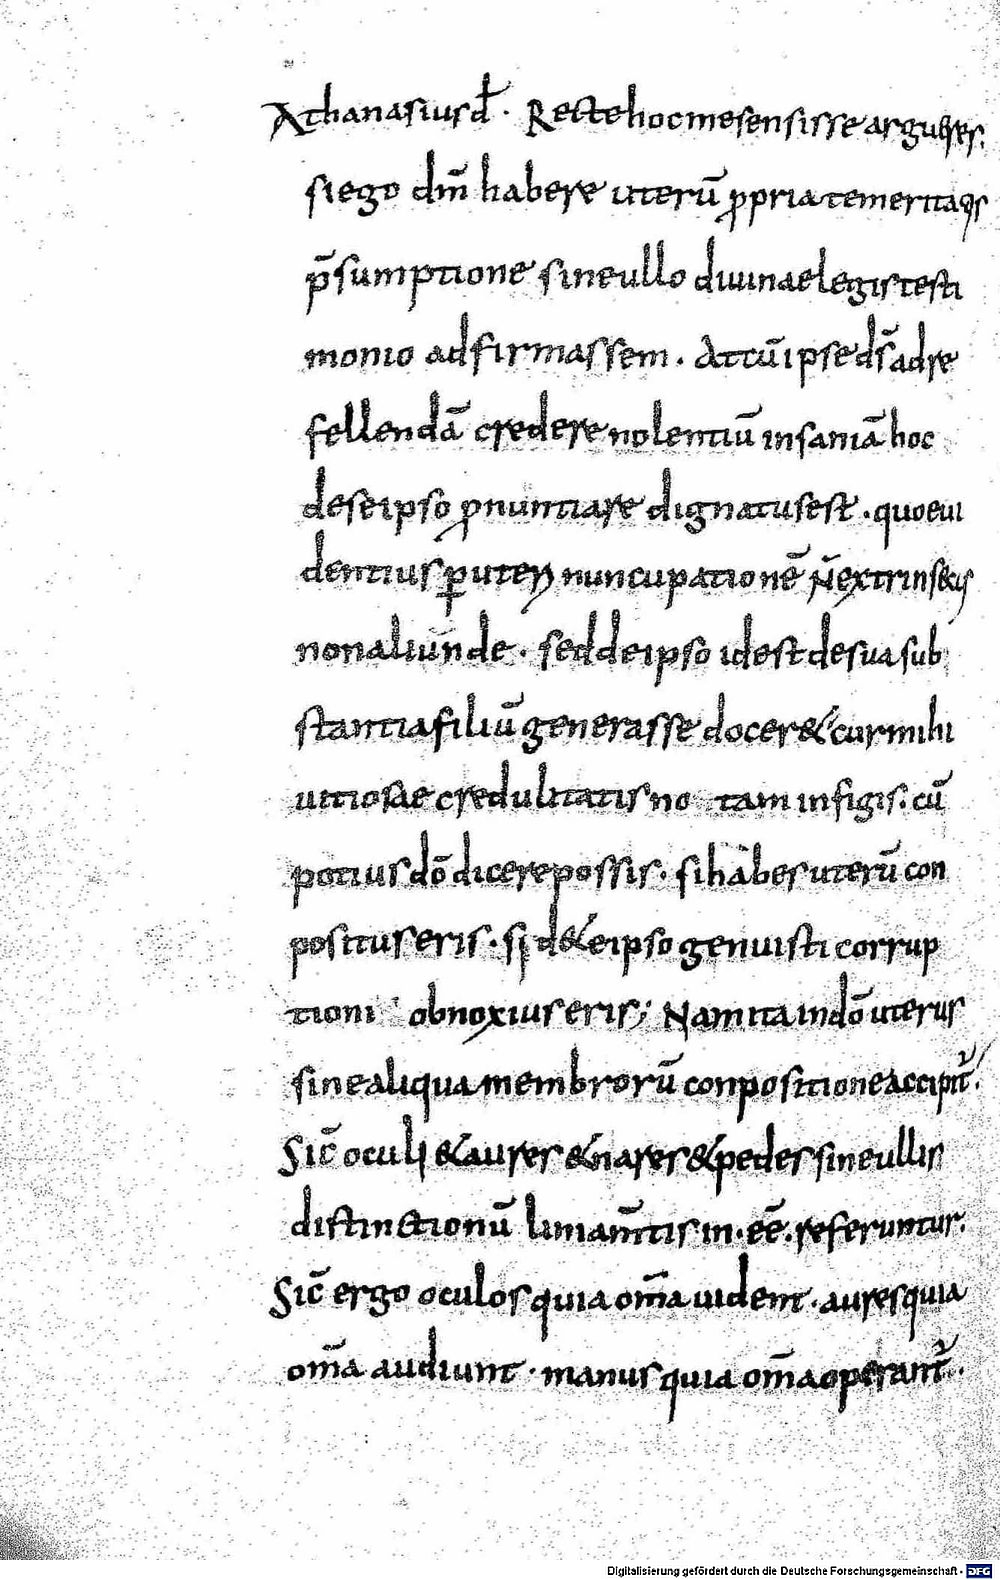 Athanasius dł. Recte hoc me sensisse argueres.
si ego dm̄ habere uterū ꝓpria temeritatis
p̄sumptione sine ullo diuinae legis testi
monio adfirmassem. At cū ipse ds̄ ad re
fellendā credere nolentiū insaniā hoc
de se ipso ꝓnuntiare dignatus est. quo eui
dentius ꝑ uteri nuncupationē n̄ extrinsecus
non aliunde. sed de ipso id est de sua sub
stantia filiū generasse docer& cur mihi
uitiosae credulitatis no tam infigis. cū
potius dō dicere possis. si habes uterū con
positus eris. si d& e ipso genuisti corrup
tioni obnoxius eris; Nam ita in dō uterus
sine aliqua membrorū conpositione accipit᷑.
Sic̄ oculi & aures & nares & pedes sine ullis
distinctionū liniam̄tis in. eē. referuntur.
Sic̄ ergo oculos quia om̄a uident. aures quia
om̄a audiunt. manus quia om̄a operant᷑.
Digitalisierung gefördert durch die Deutsche Forschungsgemeinschaft - DFG